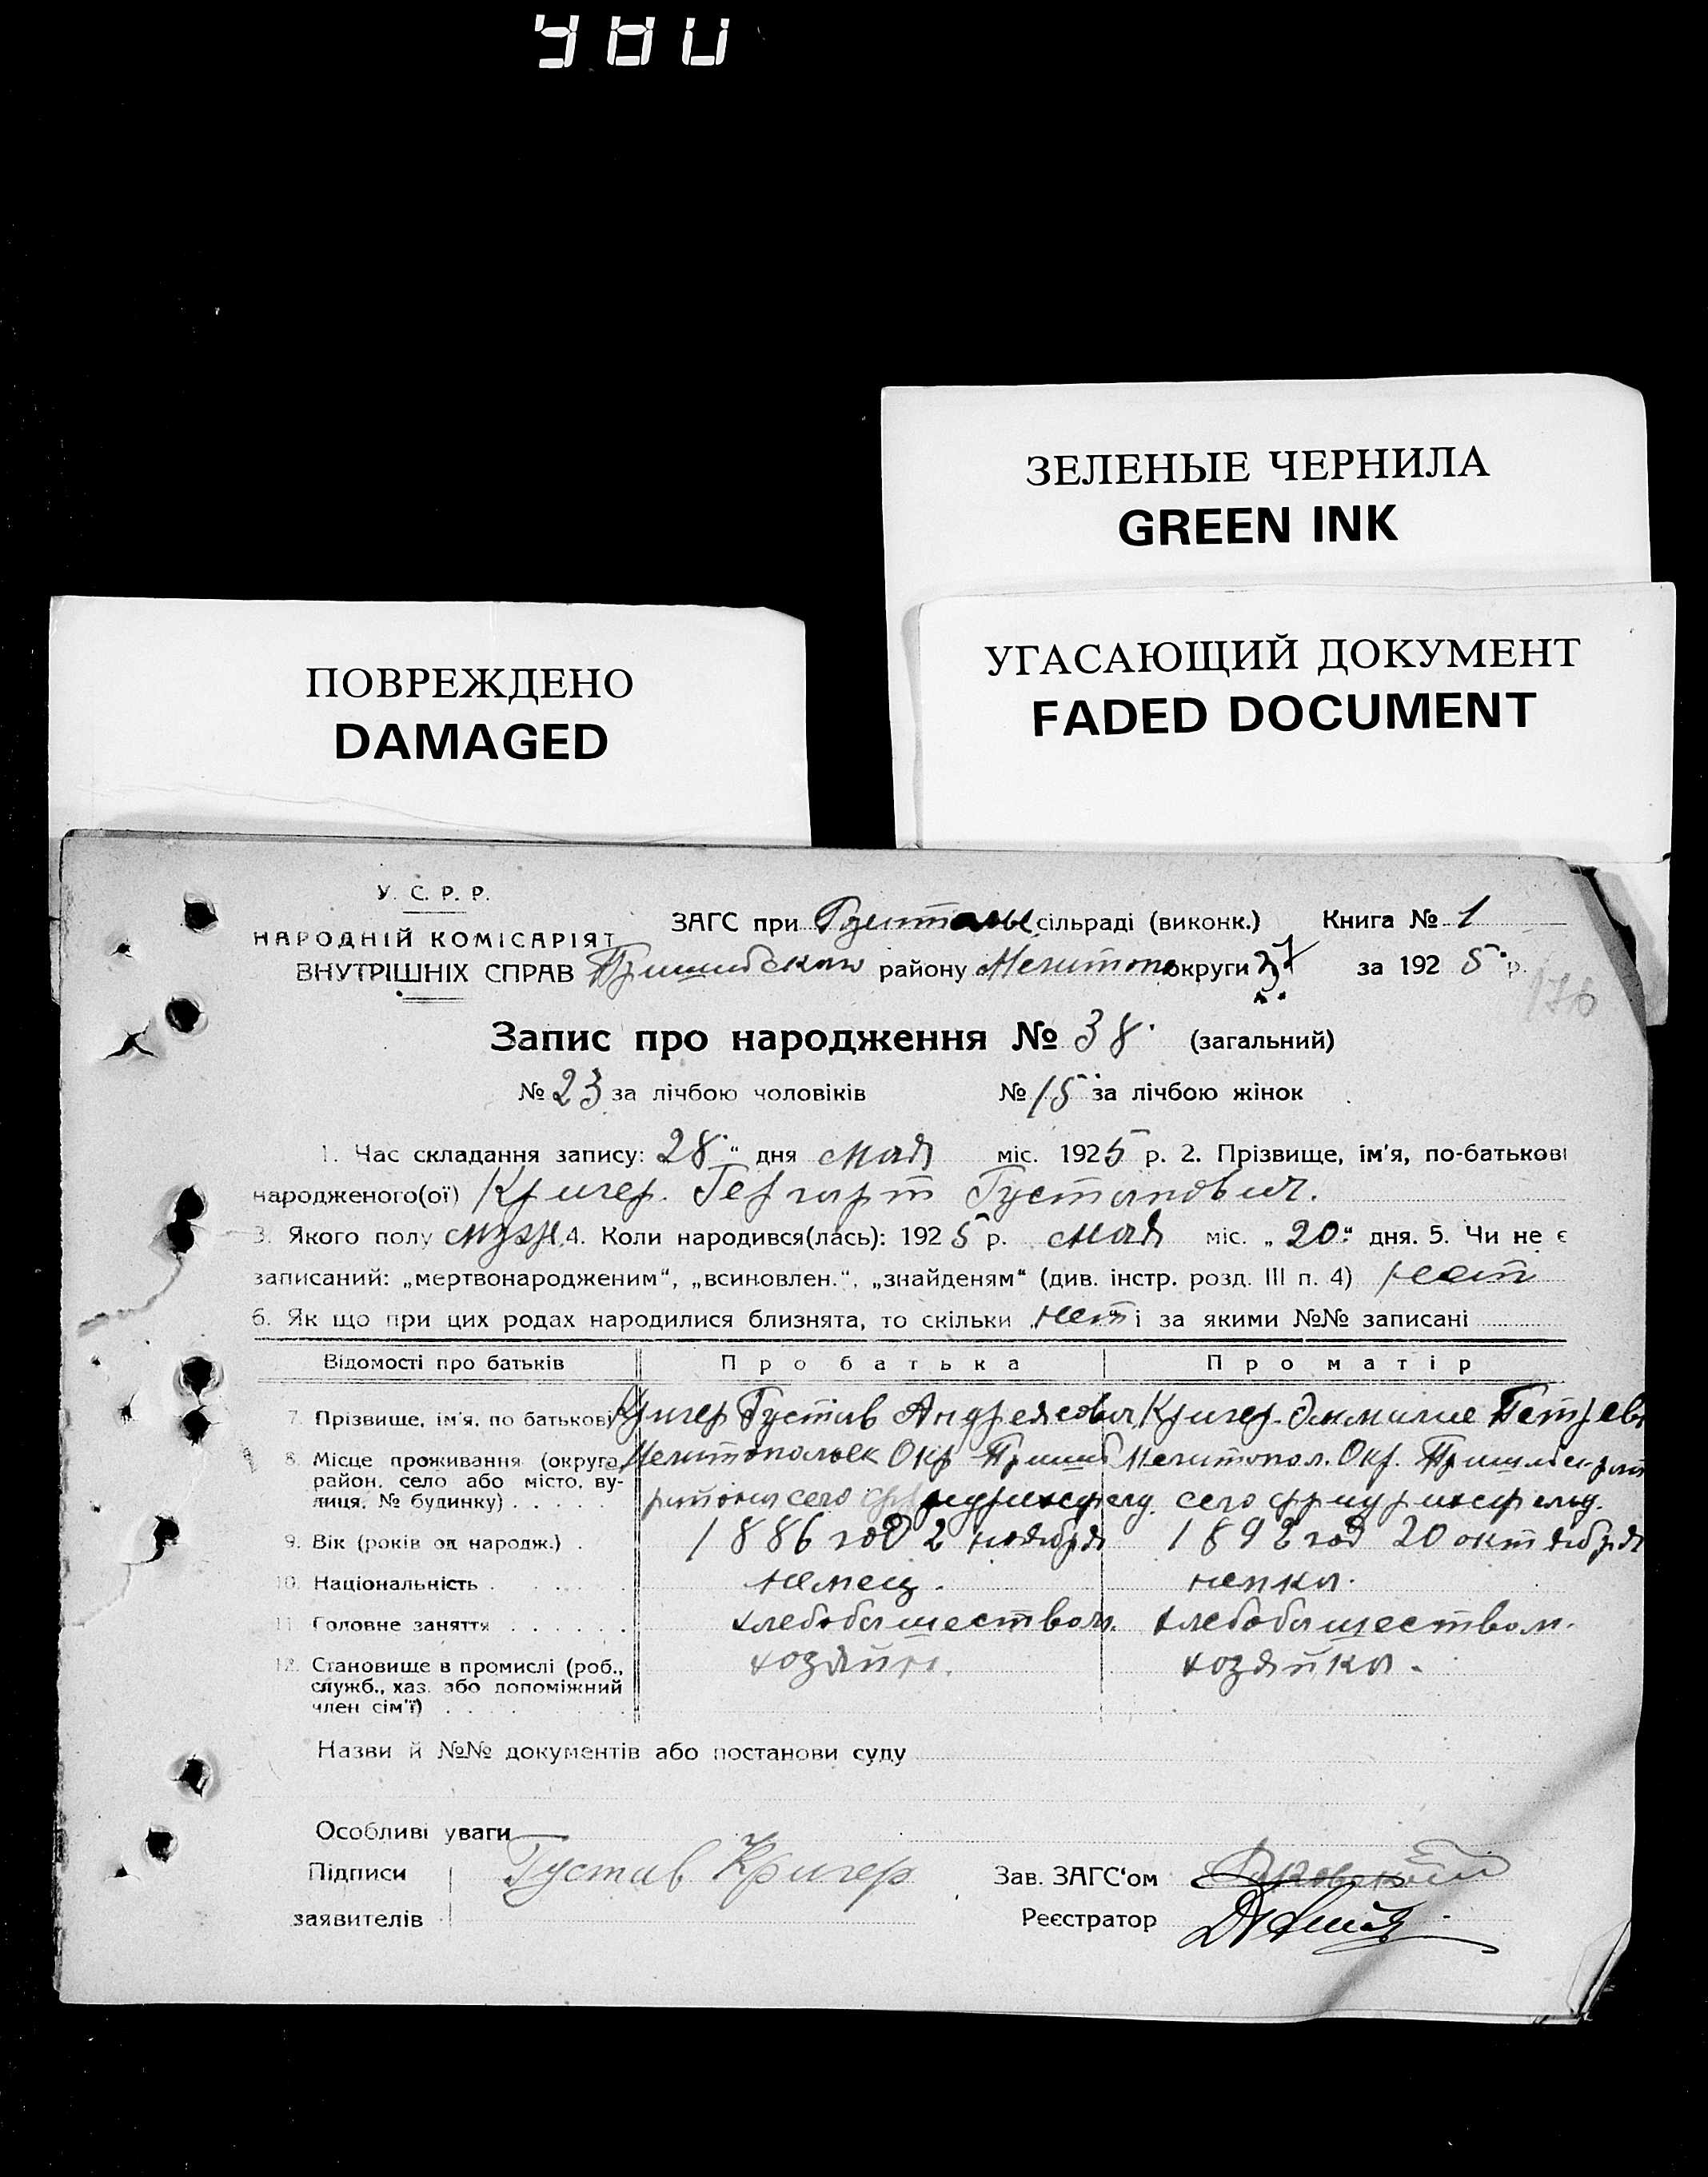 980
ЗЕЛЕНЫЕ ЧЕРНИЛА
GREEN INK
ПОВРЕЖДЕНО
DAMAGED
УГАСАЮЩИЙ ДОКУМЕНТ
FADED DOCUMENT
У. С. Р. Р.
НАРОДНІЙ КОМІСАРІЯТ
ВНУТРІШНІХ СПРАВ
ЗАГС при сільраді (виконк.) Книга № 1
Пришибском району Мелитоп округи за 1925 р.
176
Запис про народження № 38. (загальний)
№ 23 за лічбою чоловіків № 15 за лічбою жінок
1. Час складання запису: 28 " дня мая міс. 1925 р. 2. Прізвище, ім'я, по-батькові
народженого(ої) Кригер. Гергарт Густавович.
3. Якого полу муж. 4. Коли народився(лась): 1925 р. мая міс. „ 20 " дня. 5. Чи не є
записаний: „мертвонародженим", „всиновлен.", „знайденям" (див. інстр. розд. III п. 4) нет
6. Як що при цих родах народилися близнята, то скільки „нет" і за якими №№ записані
Відомості про батьків Про батька Про матір
7. Прізвище, ім'я, по батькові Кригер Густав Андреясович Кригер. Эммилие Петрев
8. Місце проживання (округа, Мелитопольск Окр Пришиб Мелитопол. Окр. Пришибск. рай
район, село або місто, ву-
лиця, № будинку) . . . . . района село фридрихсфелд село фридрихсфельд.
9. Вік (років од народж.) . 1886 год 2 ноября 1892 год 20 октября
10. Національність . . . . . немец. немка.
11. Головне заняття . . . . . . хлебопашеством. хлебопашеством.
12. Становище в промислі (роб., хозяйн. хозяйка.
служб., хаз. або допоміжний
член сім'ї) . . . . . . .
Назви й №№ документів або постанови суду
Особливі уваги
Підписи Густав Кригер Зав. ЗАГС'ом
заявителів Реєстратор